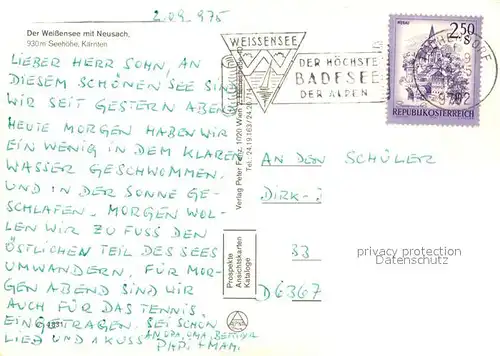 2.09.1975
Der Weißensee mit Neusach,
930 m Seehöhe, Kärnten
LIEBER HERR SOHN, AN
DIESEM SCHÖNEN SEE SIND
WIR SEIT GESTERN ABEND
HEUTE MORGEN HABEN WIR
EIN WENIG IN DEM KLAREN
WASSER GESCHWOMMEN
UND IN DER SONNE GE-
SCHLAFEN. MORGEN WOL-
LEN WIR ZU FUSS DEN
ÖSTLICHEN TEIL DES SEES
UMWANDERN. FÜR MOR-
GEN ABEND SIND WIR
AUCH FÜR DAS TENNIS
EINGETRAGEN. SEI SCHÖN
LIEB UND 1 KUSS AN OPA, OMA,
PAPI + MAMI
WEISSENSEE
DER HÖCHSTE
BADESEE
DER ALPEN
2.50
S
MURAU
REPUBLIK ÖSTERREICH
9702
Verlag Peter Fenz, 1020 Wien
Prospekte
Ansichtskarten
Kataloge
AN DEN SCHÜLER
DIRK-
33
D 6367
privacy protection
Datenschutz